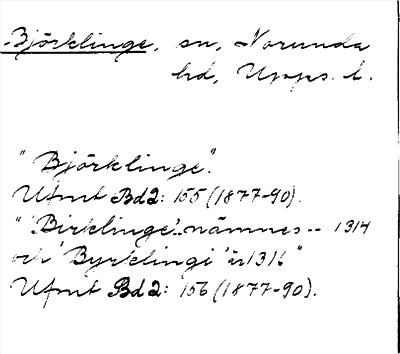 Björklinge, sn, Norunda
hd, Upps. l.
"Björklinge".
Ufmt Bd2: 155 (1877-90).
"'Birklinge' nämnes -- 1314
och 'Byrklingi' år 1316"
Ufmt Bd2: 156 (1877-90).